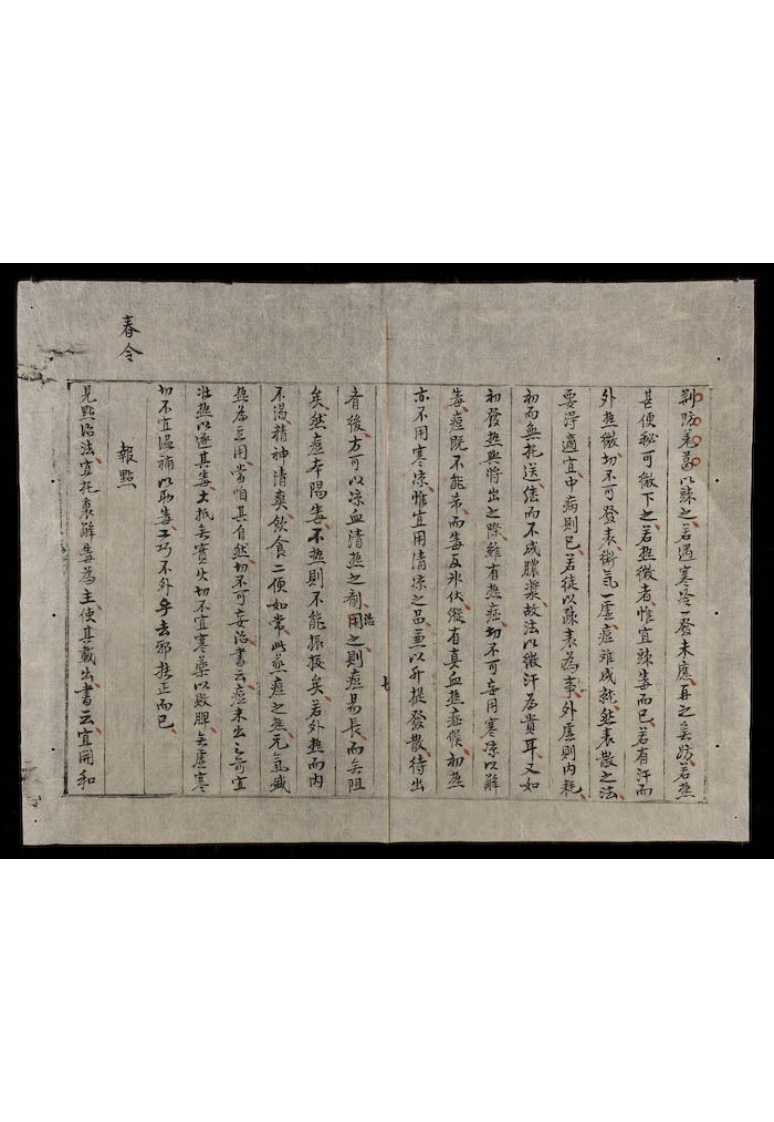 荆防羌葛以踈之若遇寒冷一發未應再之矣妨若热
甚便秘可微下之若热微者惟宜踈毒而已若有汗而
外热微切不可發表衛氣一虚痘难成就然表散之法
要淂適宜中病則已若徒以踈表為事外虚則内耗
初而無托送僿而不成膿漿故法以微汗为貴耳又如
初發热與将出之際虽有热症切不可妄用寒凉以解
毒痘既不能芾而毒反氷伏縱有真血热症候初热
亦不用寒凉惟宜用清凉之品兼以升提發散待出
者後方可以凉血清热之劑治用之則痘易長而矣阻
矣然痘本陽毒不热則不能振拔矣若外热而内
不渴精神清爽飲食二便如常此蒸痘之热元氣盛
热为主用當咱其自然切不可妄治書云痘未出之前宜
壮热以逐其毒大抵矣實火切不宜寒藥以敗脾矣虚寒
切不宜温補以助毒工巧不外乎去邪扶正而已
報點
見點治法宜托裏解毒為主使其載出書云宜開和
春令
七